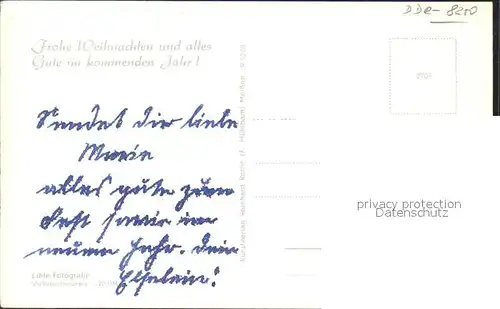 DDR-8250
Frohe Weihnachten und alles
Gute im kommenden Jahr!
Sendet dir liebe
Marie
alles gute zum
Fest sowie im
neuen Jahr. Dein
privacy protection
Datenschutz
Echte Fotografie